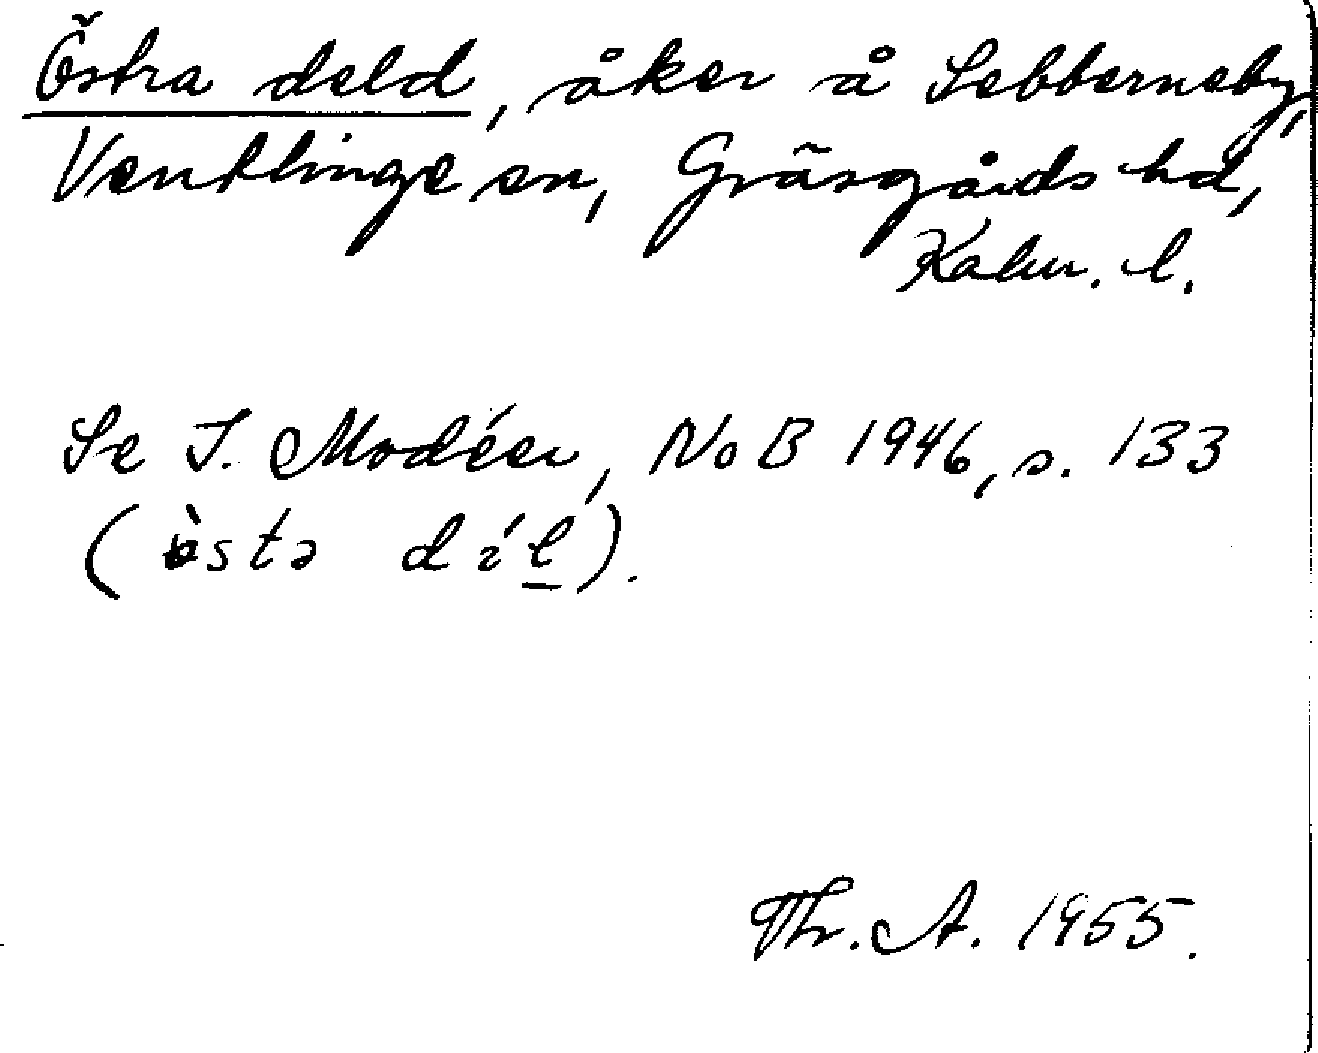 Östra deld, åker å Sebberneby,
Ventlinge sn, Gräsgårds hd,
Kalm. l.
Se I. Modéer, NoB 1946, s. 133
(östə díl).
Thr. A. 1955.